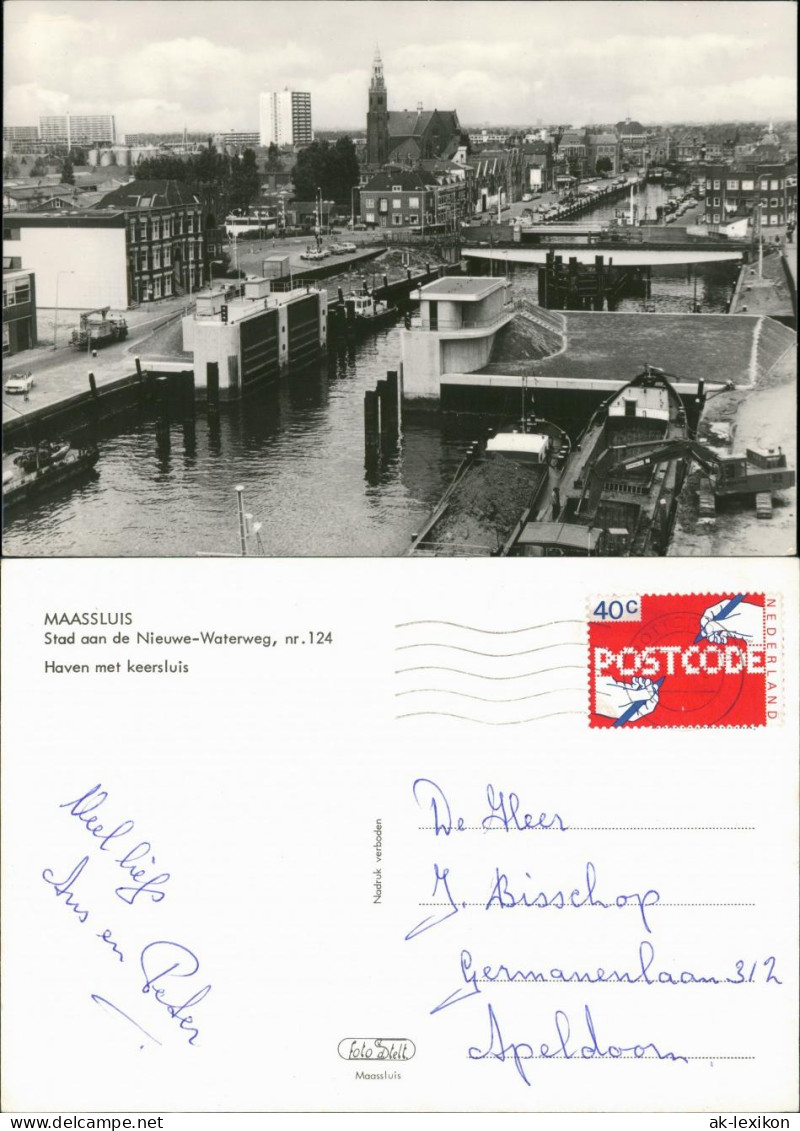 MAASSLUIS
Stad aan de Nieuwe-Waterweg, nr. 124
Haven met keersluis
40c
POSTCODE
NEDERLAND
Veel liefs
Ans en Peter
Nadruk verboden
De Heer
J. Bisschop
Germanenlaan 312
Apeldoorn
foto Stelt
Maassluis
ansichtskarten-lexikon.de
ak-lexikon.com